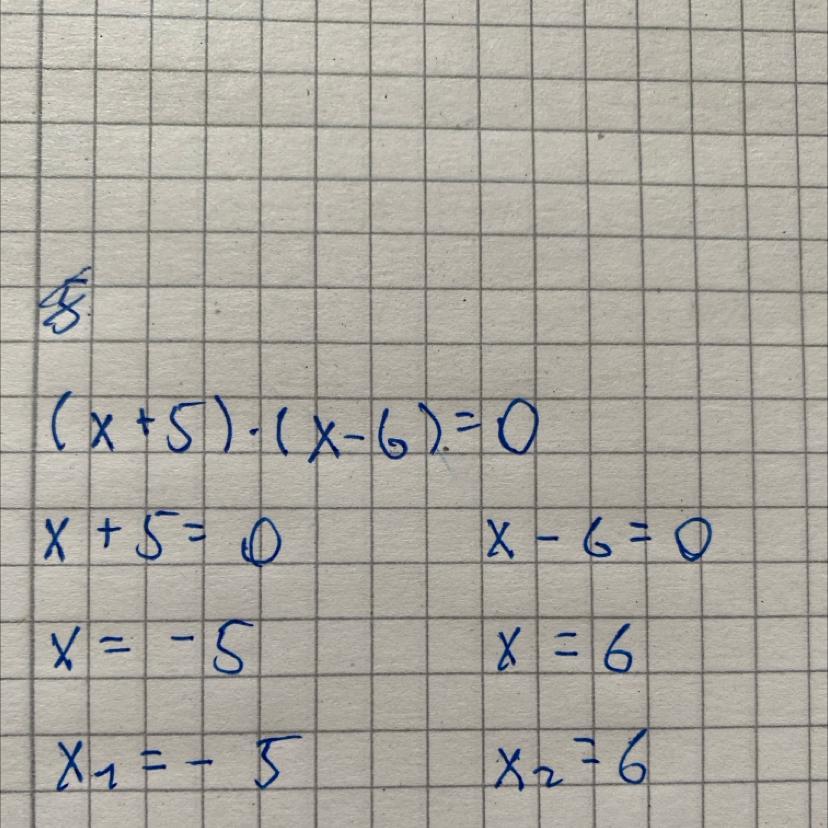 (x+5)·(x-6)=0
x+5=0 x-6=0
x=-5 x=6
x₁=-5 x₂=6